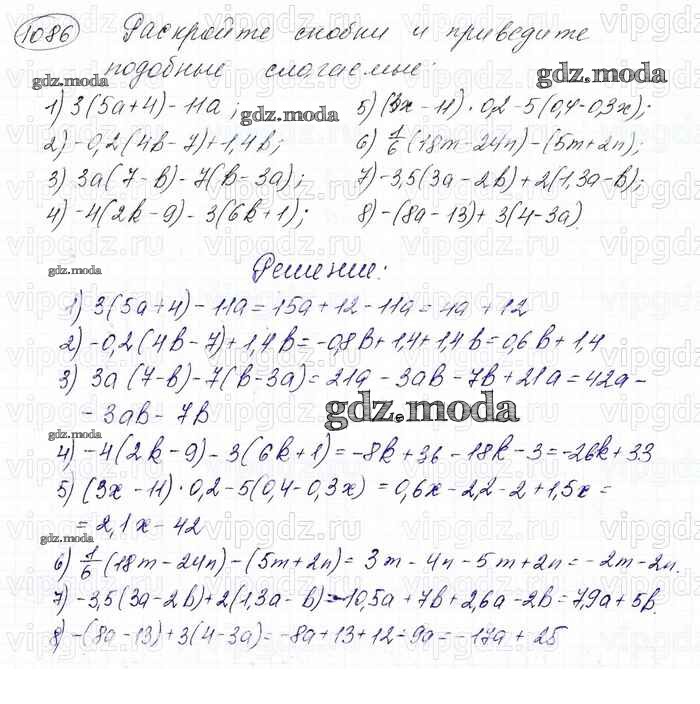 1086 Раскройте скобки и приведите
подобные слагаемые:
1) 3(5a+4)-11a;
2) -0,2(4b-7)+1,4b;
3) 3a(7-b)-7(b-3a);
4) -4(2k-9)-3(6k+1);
5) (3x-11)·0,2-5(0,4-0,3x);
6) 1/6(18m-24n)-(5m+2n);
7) -3,5(3a-2b)+2(1,3a-b);
8) -(8a-13)+3(4-3a)
Решение:
1) 3(5a+4)-11a=15a+12-11a=4a+12
2) -0,2(4b-7)+1,4b=-0,8b+1,4+1,4b=0,6b+1,4
3) 3a(7-b)-7(b-3a)=21a-3ab-7b+21a=42a-
-3ab-7b
4) -4(2k-9)-3(6k+1)=-8k+36-18k-3=-26k+33
5) (3x-11)·0,2-5(0,4-0,3x)=0,6x-2,2-2+1,5x=
=2,1x-42
6) 1/6(18m-24n)-(5m+2n)=3m-4n-5m+2n=-2m-2n.
7) -3,5(3a-2b)+2(1,3a-b)=-10,5a+7b+2,6a-2b=7,9a+5b.
8) -(8a-13)+3(4-3a)=-8a+13+12=9a=-17a+25
gdz.moda
gdz.moda
gdz.moda
gdz.moda
gdz.moda
gdz.moda
gdz.moda
vipgdz.ru